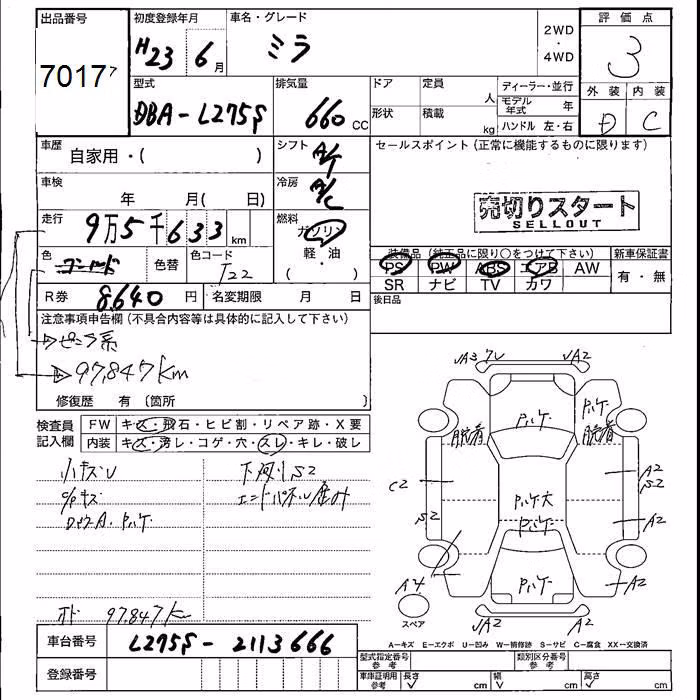 出品番号 初度登録年月 車名・グレード 2WD・4WD 評価点
7017 H23 6月 ミラ 3
型式 排気量 ドア 定員 人 ディーラー・並行 外装 内装
DBA-L275S 660 CC 形状 積載 kg モデル年式 年 D C
ハンドル 左・右
車歴 自家用・( ) シフト A/T セールスポイント(正常に機能するものに限ります)
車検 年 月( 日) 冷房 A/C 売切りスタート
SELLOUT
走行 9万5千633km 燃料 ガソリン
軽・油
( )
色 色替 色コード T22 装備品(純正品に限り○をつけて下さい) 新車保証書
PS PW ABS エアB AW 有・無
SR ナビ TV カワ
R券 8,640円 名変期限 月 日 後日品
注意事項申告欄(不具合内容等は具体的に記入して下さい)
→ピンク系
→97,847km
修復歴 有(箇所 )
JA3 JA2
検査員記入欄 FW キズ・飛石・ヒビ割・リペア跡・X要
内装 キズ・汚レ・コゲ・穴・スレ・キレ・破レ
小キズU 下廻りS2
C/Pキズ エンドパネル歪み
ハゲ
ハゲ
脱着
脱着
C2
S2
A2
S2
A2
ハゲ大
ハゲ
ハゲ
A4
A2
スペア
JA2
A2
97,847K
A-キズ E-エクボ U-凹み W-補修跡 S-サビ C-腐食 XX-交換済
車台番号 L275S-2113666
型式指定番号 参考 類別区分番号 参考
登録番号 車庫証明用 参考 長さ cm 幅 cm 高さ cm